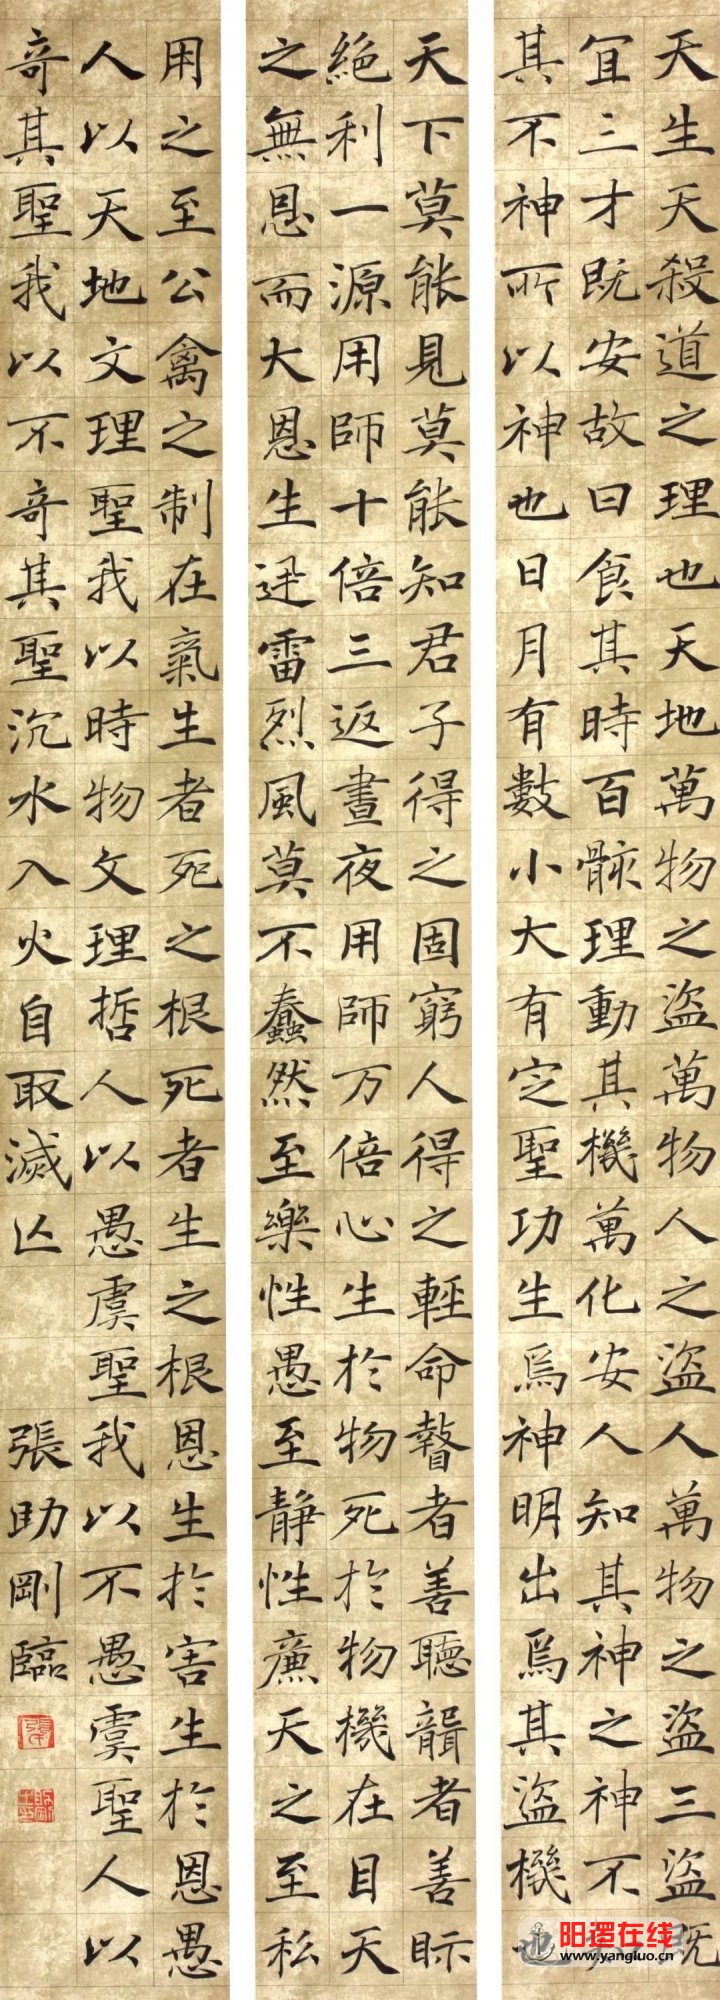 天生天殺道之理也天地萬物之盜萬物人之盜人萬物之盜三盜既
冝三才既安故曰食其時百骸理動其機萬化安人知其神之神不
其不神所以神也日月有數小大有定聖功生焉神明出焉其盜機也
天下莫能見莫能知君子得之固窮人得之輕命瞽者善聽聾者善眎
絕利一源用師十倍三返晝夜用師万倍心生於物死於物機在目天
之無恩而大恩生迅雷烈風莫不蠢然至樂性愚至静性廉天之至私
用之至公禽之制在氣生者死之根死者生之根恩生於害生於恩愚
人以天地文理聖我以時物文理哲人以愚虞聖我以不愚虞聖人以
奇其聖我以不奇其聖沉水入火自取滅亡 張助剛臨
阳逻在线
www.yangluo.cn